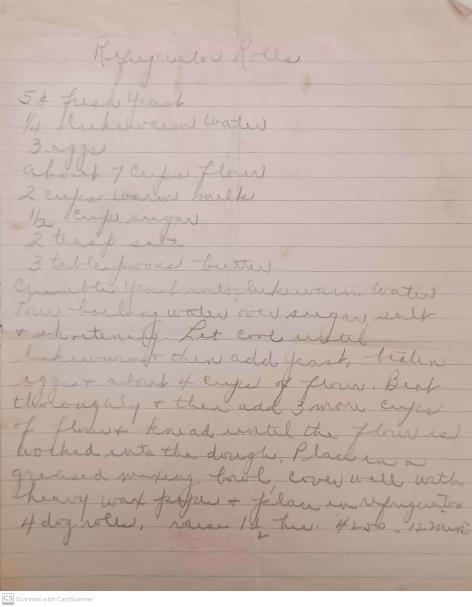 Refrigerator Rolls
5¢ fresh yeast
1/4 lukewarm water
3 eggs
about 7 cups flour
2 cups warm milk
1/2 cup sugar
2 teasp salt
3 tablespoons butter
Crumble yeast into lukewarm water
Pour boiling water over sugar, salt
+ shortening. Let cool until
lukewarm + then add yeast, beaten
eggs + about 4 cups of flour. Beat
thoroughly + then add 3 more cups
of flour + knead until the flour is
worked into the dough. Place in a
greased mixing bowl, cover well with
heavy wax paper + place in refrigerator
4 doz rolls. raise 1 1/2 hrs. 425° - 12 min
CS Scanned with CamScanner